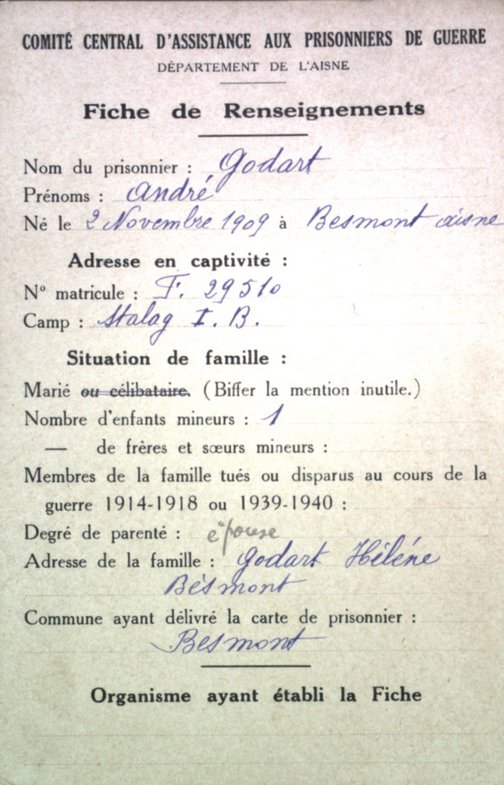 COMITÉ CENTRAL D'ASSISTANCE AUX PRISONNIERS DE GUERRE
DÉPARTEMENT DE L'AISNE
Fiche de Renseignements
Nom du prisonnier : Godart
Prénoms : André
Né le 2 Novembre 1909 à Besmont aisne
Adresse en captivité :
N° matricule : F. 29510
Camp : Stalag I. B.
Situation de famille :
Marié ou célibataire. (Biffer la mention inutile.)
Nombre d'enfants mineurs : 1
— de frères et sœurs mineurs :
Membres de la famille tués ou disparus au cours de la
guerre 1914-1918 ou 1939-1940 :
Degré de parenté : épouse
Adresse de la famille : Godart Héléne
Bésmont
Commune ayant délivré la carte de prisonnier :
Besmont
Organisme ayant établi la Fiche